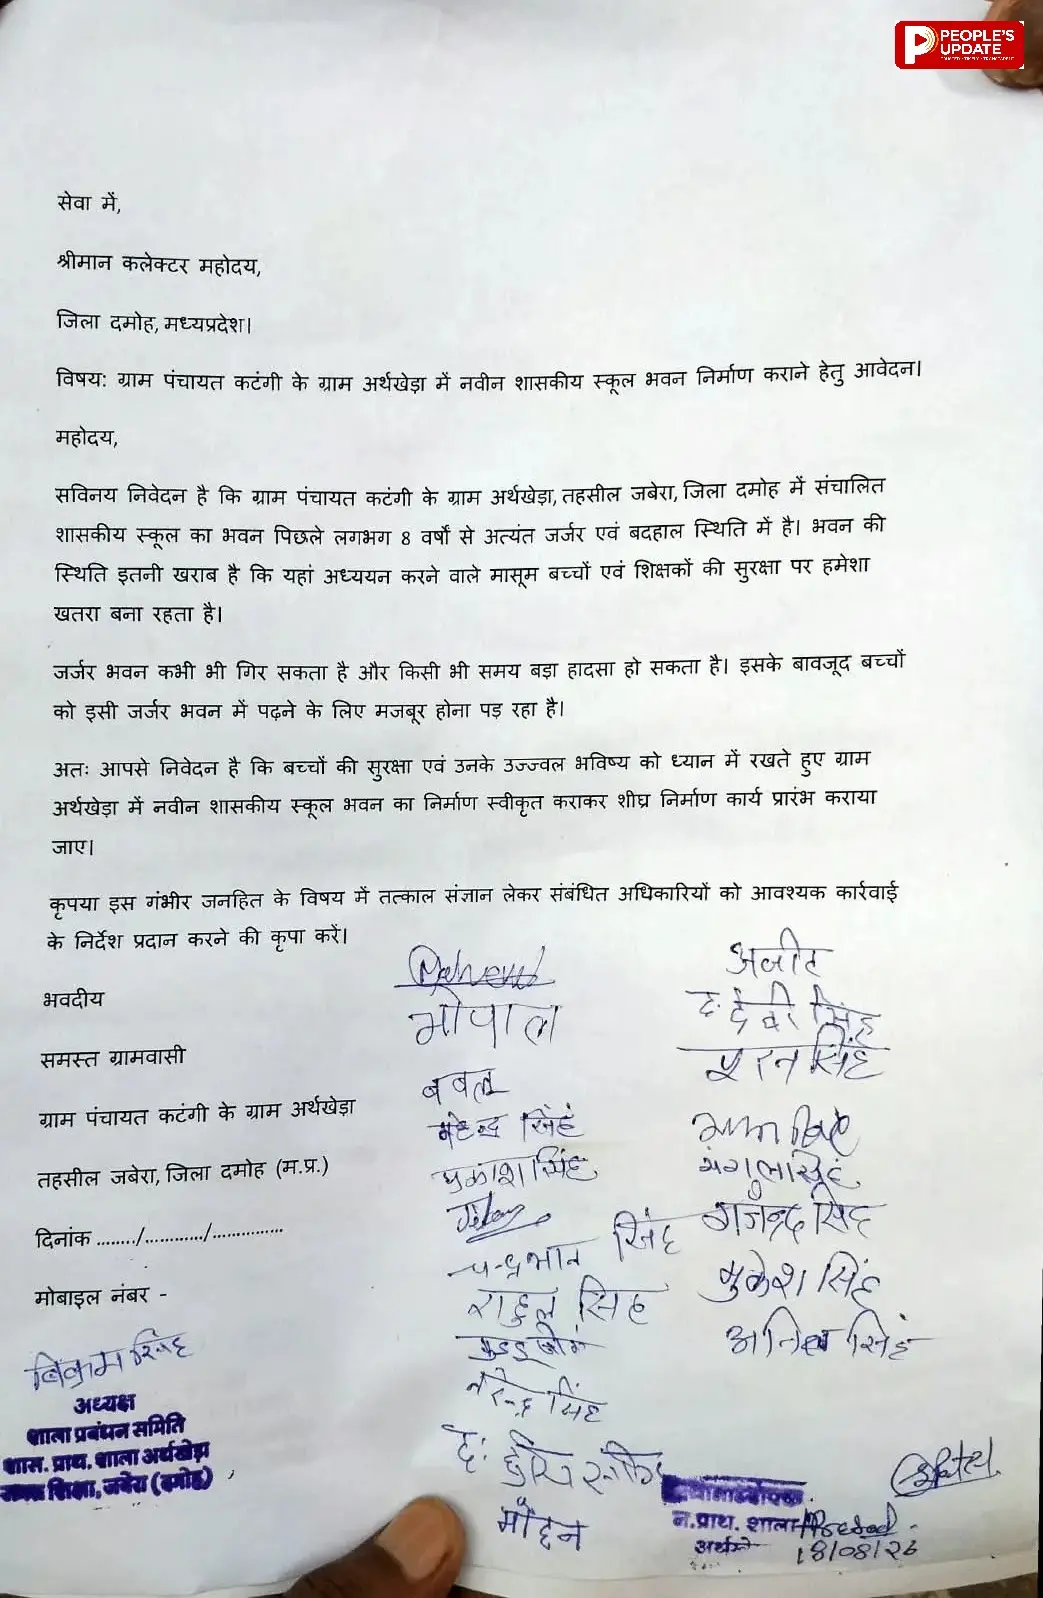 PEOPLE'S
UPDATE
सेवा में,
श्रीमान कलेक्टर महोदय,
जिला दमोह, मध्यप्रदेश।
विषय: ग्राम पंचायत कटंगी के ग्राम अर्थखेड़ा में नवीन शासकीय स्कूल भवन निर्माण कराने हेतु आवेदन।
महोदय,
सविनय निवेदन है कि ग्राम पंचायत कटंगी के ग्राम अर्थखेड़ा, तहसील जबेरा, जिला दमोह में संचालित
शासकीय स्कूल का भवन पिछले लगभग 8 वर्षों से अत्यंत जर्जर एवं बदहाल स्थिति में है। भवन की
स्थिति इतनी खराब है कि यहां अध्ययन करने वाले मासूम बच्चों एवं शिक्षकों की सुरक्षा पर हमेशा
खतरा बना रहता है।
जर्जर भवन कभी भी गिर सकता है और किसी भी समय बड़ा हादसा हो सकता है। इसके बावजूद बच्चों
को इसी जर्जर भवन में पढ़ने के लिए मजबूर होना पड़ रहा है।
अतः आपसे निवेदन है कि बच्चों की सुरक्षा एवं उनके उज्ज्वल भविष्य को ध्यान में रखते हुए ग्राम
अर्थखेड़ा में नवीन शासकीय स्कूल भवन का निर्माण स्वीकृत कराकर शीघ्र निर्माण कार्य प्रारंभ कराया
जाए।
कृपया इस गंभीर जनहित के विषय में तत्काल संज्ञान लेकर संबंधित अधिकारियों को आवश्यक कार्रवाई
के निर्देश प्रदान करने की कृपा करें।
भवदीय
समस्त ग्रामवासी
ग्राम पंचायत कटंगी के ग्राम अर्थखेड़ा
तहसील जबेरा, जिला दमोह (म.प्र.)
दिनांक ......../............/...............
मोबाइल नंबर -
अजीत
गोपाल
द. देवी सिंह
पूरन सिंह
बबलू
महेन्द्र सिंह
प्रकाश सिंह
मंगुल सिंह
गजेन्द्र सिंह
चन्द्रभान सिंह
मुकेश सिंह
राहुल सिंह
सिंह
नरेन्द्र सिंह
द:
मोहन
बिक्रम सिंह
अध्यक्ष
शाला प्रबंधन समिति
शास. प्राथ. शाला अर्थखेड़ा
शिक्षा, जबेरा (दमोह)
न.प्राथ. शाला
18/08/26